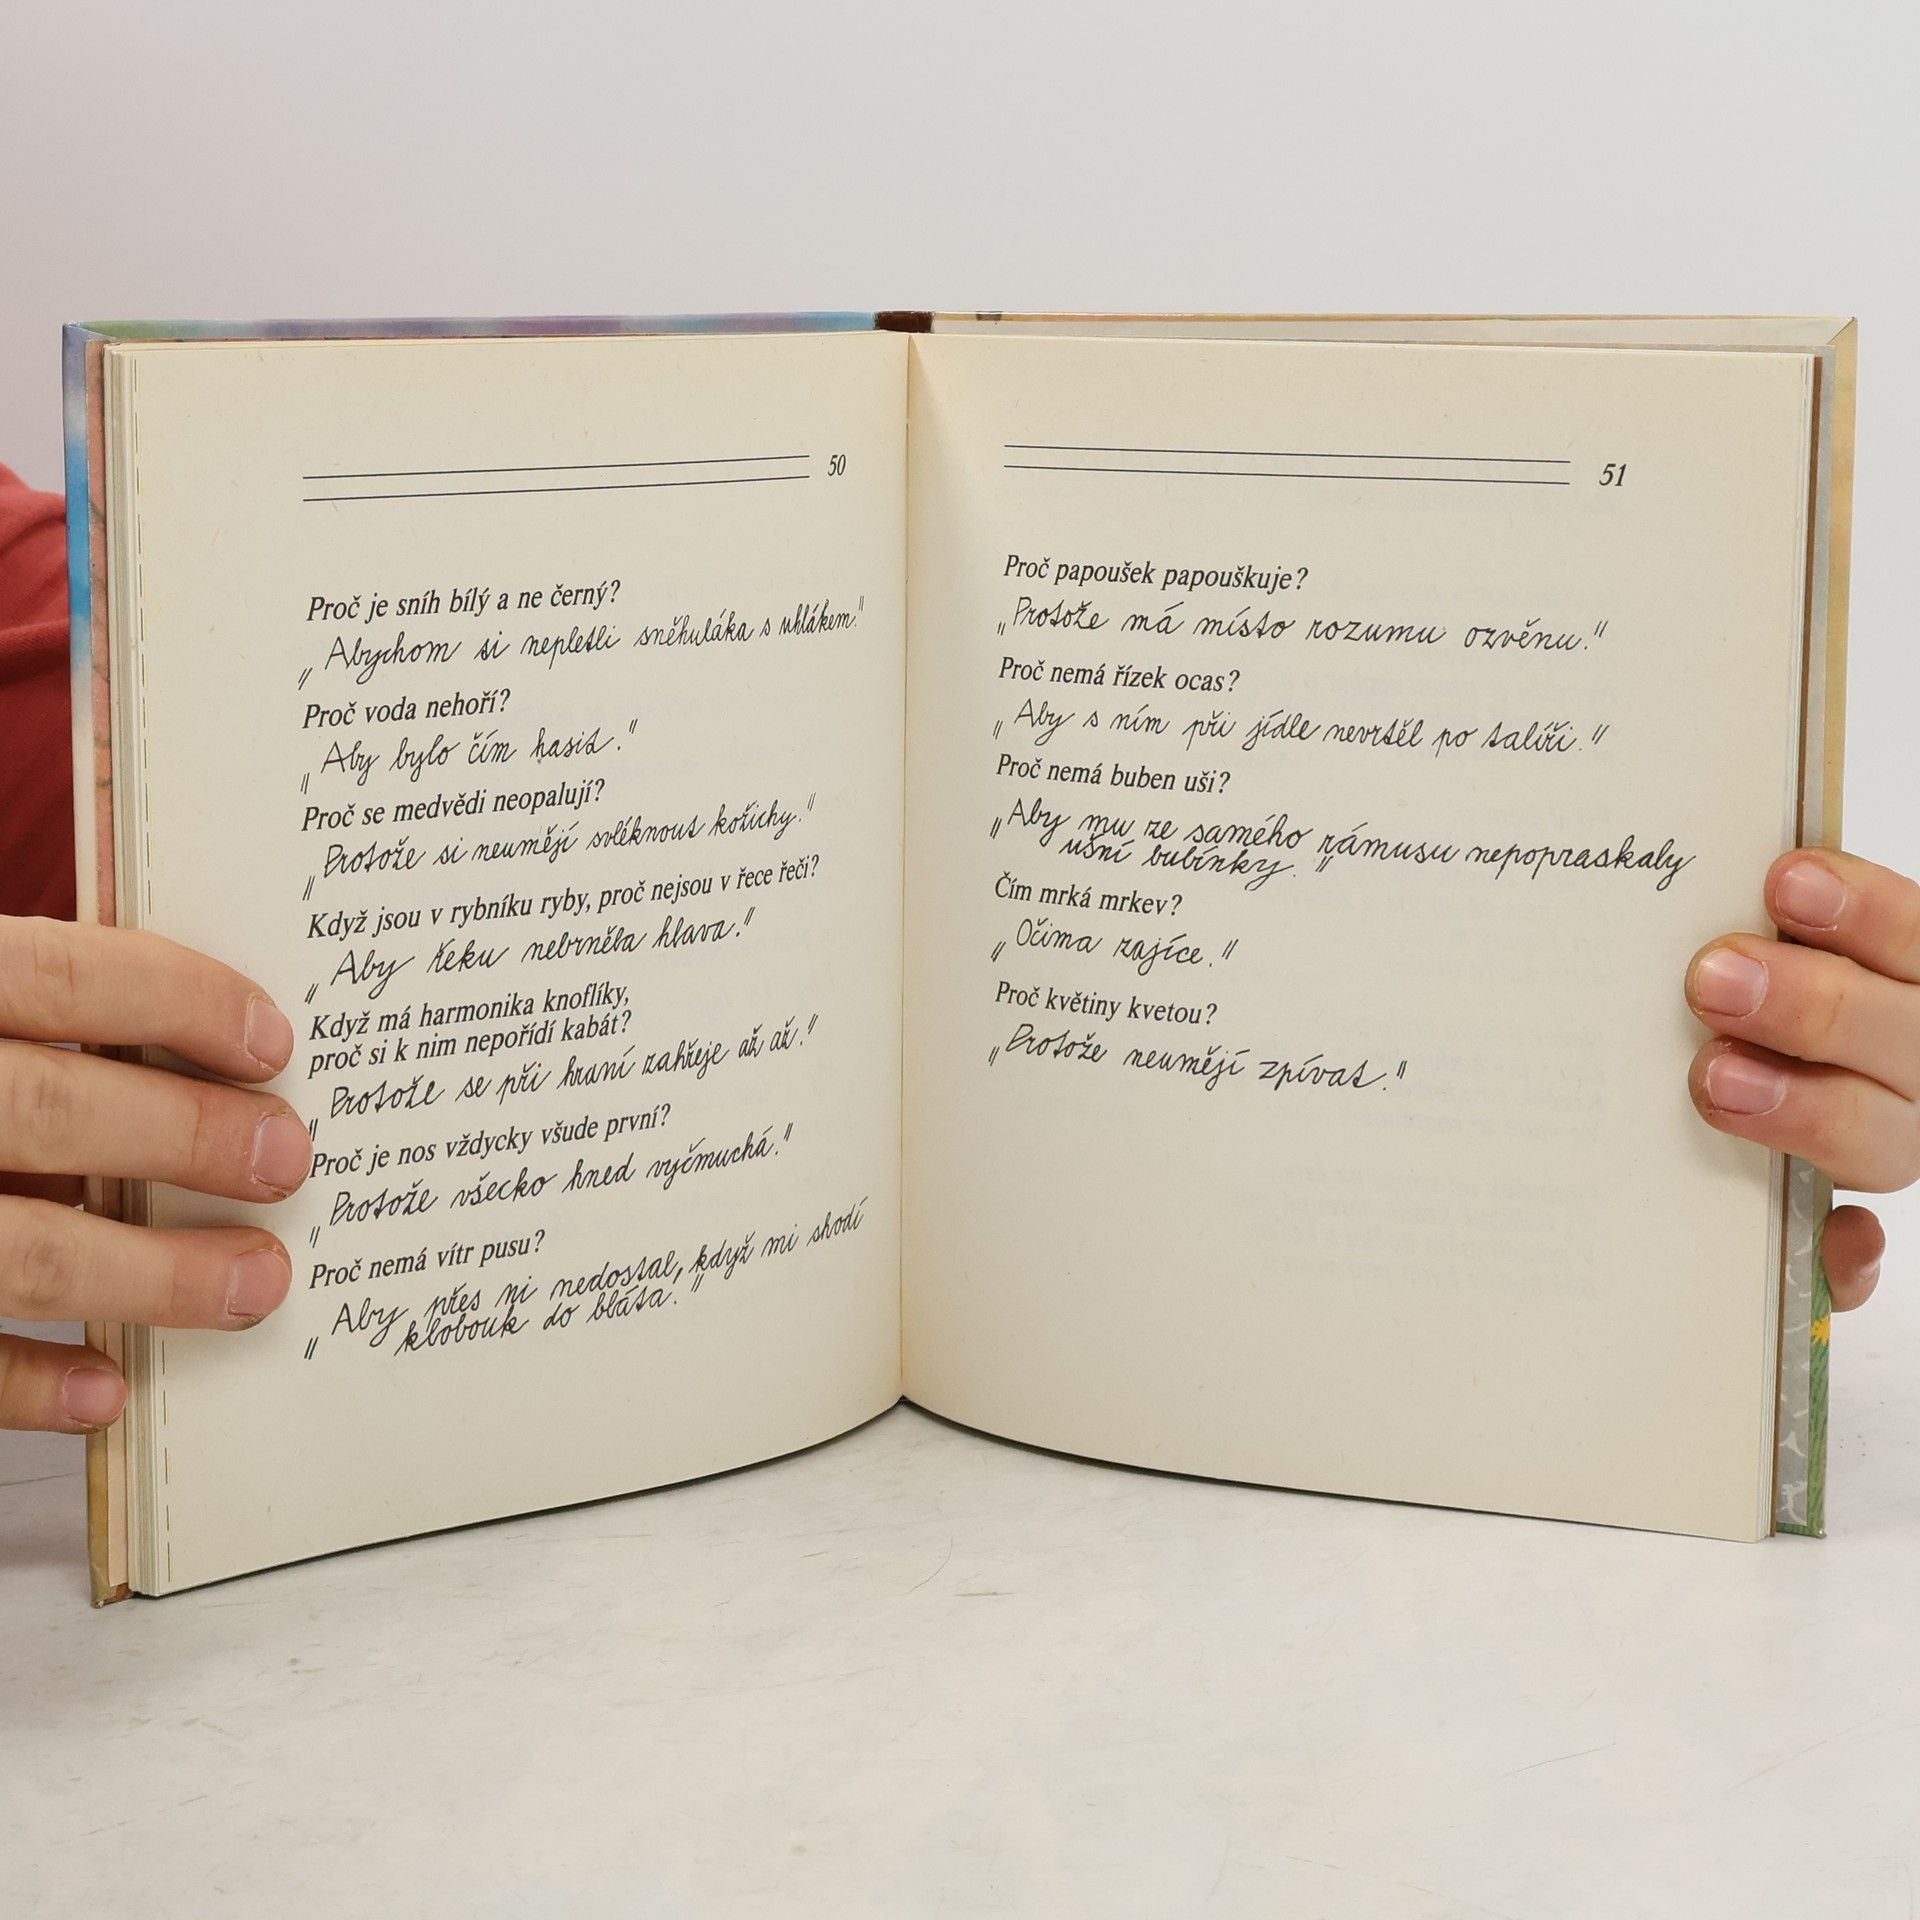 50
Proč je sníh bílý a ne černý?
„Abychom si nepletli sněhuláka s uhlákem."
Proč voda nehoří?
„Aby bylo čím hasit."
Proč se medvědi neopalují?
„Protože si neumějí svléknout kožichy."
Když jsou v rybníku ryby, proč nejsou v řece řeči?
„Aby řeku nebrněla hlava."
Když má harmonika knoflíky,
proč si k nim nepořídí kabát?
„Protože se při hraní zahřeje až až."
Proč je nos vždycky všude první?
„Protože všecko hned vyčmuchá."
Proč nemá vítr pusu?
„Aby přes ni nedostal, když mi shodí
klobouk do bláta."
51
Proč papoušek papouškuje?
„Protože má místo rozumu ozvěnu."
Proč nemá řízek ocas?
„Aby s ním při jídle nevrtěl po talíři."
Proč nemá buben uši?
„Aby mu ze samého rámusu nepopraskaly
ušní bubínky."
Čím mrká mrkev?
„Očima zajíce."
Proč květiny kvetou?
„Protože neumějí zpívat."